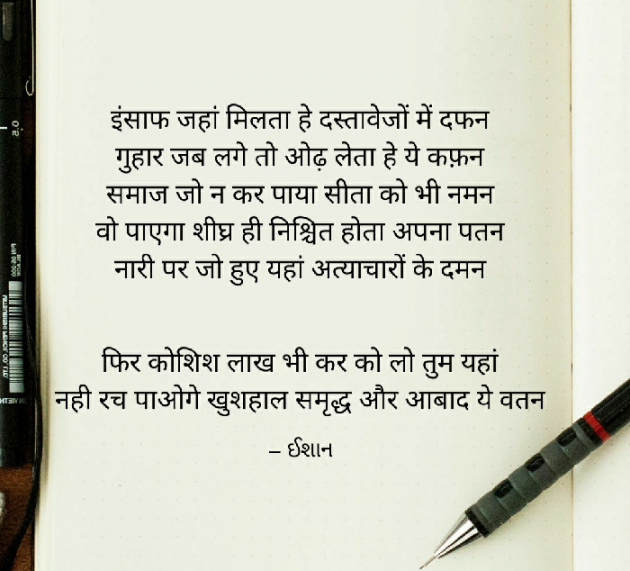 इंसाफ जहां मिलता हे दस्तावेजों में दफन
गुहार जब लगे तो ओढ़ लेता हे ये कफ़न
समाज जो न कर पाया सीता को भी नमन
वो पाएगा शीघ्र ही निश्चित होता अपना पतन
नारी पर जो हुए यहां अत्याचारों के दमन
फिर कोशिश लाख भी कर को लो तुम यहां
नही रच पाओगे खुशहाल समृद्ध और आबाद ये वतन
– ईशान